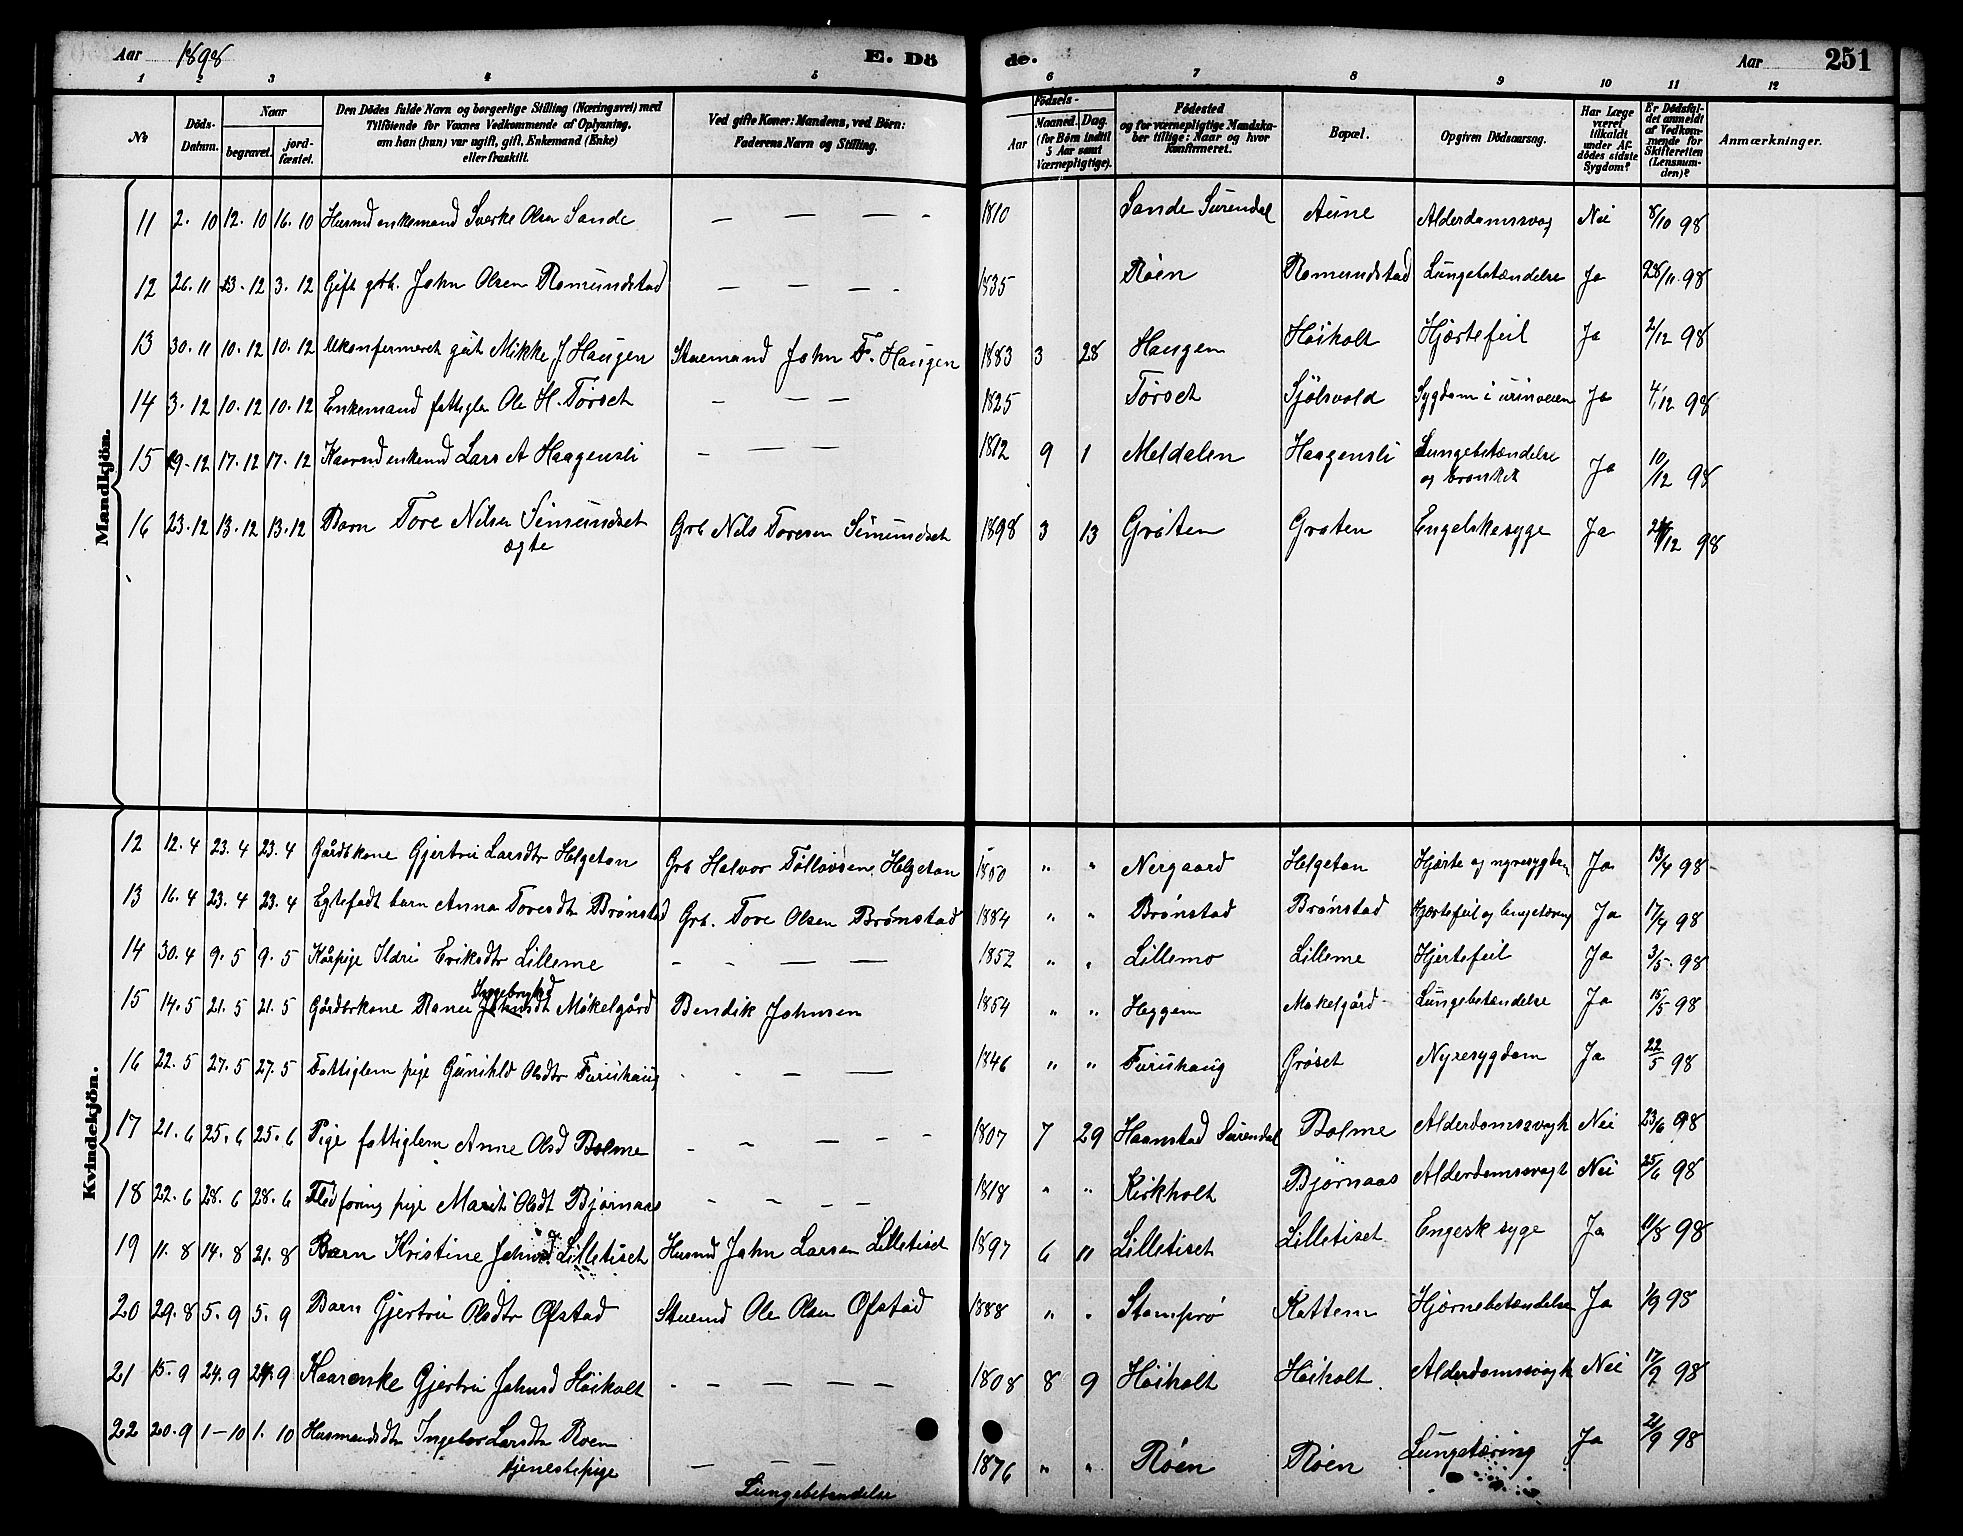 Aar 1898 E. Dö de. Aar 251
1 2 3 4 5 6 7 8 9 10 11 12
No Döds-Datum. Naar begravet. jord-fæstet. Den Dödes fulde Navn og borgerlige Stilling (Næringsvei) med Tilföiende for Voxnes Vedkommende af Oplysning, om han (hun) var ugift, gift, Enkemand (Enke) eller fraskilt. Ved gifte Koner: Mandens, ved Börn: Faderens Navn og Stilling. Födsels- Aar Maaned. Dag. (for Börn indtil 5 Aar samt Værnepligtige). Födested og for værnepligtige Mandskaber tillige: Naar og hvor konfirmeret. Bopæl. Opgiven Dödsaarsag. Har Læge været tilkaldt under Afdödes sidste Sygdom? Er Dödsfaldet anmeldt af Vedkommende for Skifteretten (Lensmanden)? Anmærkninger.
Mandkjön.
11 2. 10 12. 10 16. 10 Husmd enkemand Sverke Olsen Sande — — — - 1810 Sande Surendal Aune Alderdomssvag Nei 8/10 98
12 26. 11 3. 12 3. 12 Gift grb. John Olsen Romundstad — — — - 1835 Röen Romundstad Lungebetændelse Ja 28/11 98
13 30. 11 10. 12 10. 12 Ukonfermeret gut Mikke J. Haugen Stuemand John F. Haugen 1883 3 28 Haugen Höiholt Hjærtefeil Ja 2/12 98
14 3. 12 10. 12 10. 12 Enkemand fattiglem Ole H. Törset - — — 1825 Törset Sjölsvold Sygdom i urinveien Ja 4/12 98
15 9. 12 17. 12 17. 12 Kaarmd enkemd Lars A Haagensli - — — 1812 9 1 Meldalen Haagensli Lungebetændelse og bronkit Ja 10/12 98
16 23. 12 13. 12 13. 12 Barn Tore Nilsen Simundset ægte Grb Nils Toresen Simundset 1898 3 13 Gröten Groten Engelskesyge Ja /12 98
Kvindekjön.
12 12. 4 23. 4 23. 4 Gårdbkone Gjertru Larsdtr Helgeton Grb Halvor Tollovsen Helgeton 1850 " " Nergaard Helgeton Hjærte og nyresygdom Ja 13/4 98
13 16. 4 23. 4 23. 4 Egtefødt barn Anna Toresdtr Brönstad Grb. Tore Olsen Brönstad 1884 " " Brönstad Brönstad Hjærtefeil og lungetæring Ja 17/4 98
14 30. 4 9. 5 9. 5 Kårpige Ildri Eriksdtr Lilleme - - — — 1852 " " Lillemo Lilleme Hjertefeil Ja 3/5. 98
15 14. 5 21. 5 21. 5 Gårdbrkone Ranei Johnsdt Mökelgård Bendik Johnsen 1854 " " Heggem Mokelgård Lungebetændelse Ja 15/5 98
16 22. 5 27. 5 27. 5 Fattiglem pige Gunihld Olsdtr Furuhaug - - — — 1846 " " Furuhaug Gröset Nyresygdom Ja 22/5 98
17 21. 6 25. 6 25. 6 Pige fattiglem Anne Olsd Bolme - - — - - 1807 7 29 Haanstad Surendal Bolme Alderdomssvagh Nei 23/6 98
18 22. 6 28. 6 28. 6 Flodforing pige Marit Olsdt Björnaas - - — — 1818 " " Kirkholt Björnaas Alderdomssvagt Nei 25/6 98
19 11. 8 14. 8 21. 8 Barn Kristine Johnsd Lilletiset Husmd John Larsen Lilletiset 1897 6 11 Lilletiset Lilletiset Engesk syge Ja 11/8 98
20 29. 8 5. 9 5. 9 Barn Gjertru Olsdtr Öfstad Stuemd Ole Olsen Öfstad 1888 " " Stomprö Kattem Hjörnebetændelse Ja 1/9 98
21 15. 9 24. 9 24. 9 Kaarenke Gjertru Johnsd Höiholt - — — — — 1808 8 9 Höiholt Höiholt Alderdomssvagh Nei 17/9 98
22 20. 9 1-10 1. 10 Husmandsdtr Ingebor Larsdtr Roen tjenestepige — - — 1876 " " Röen Röen Lungetæring Ja 21/9 98
Lungebetændelse